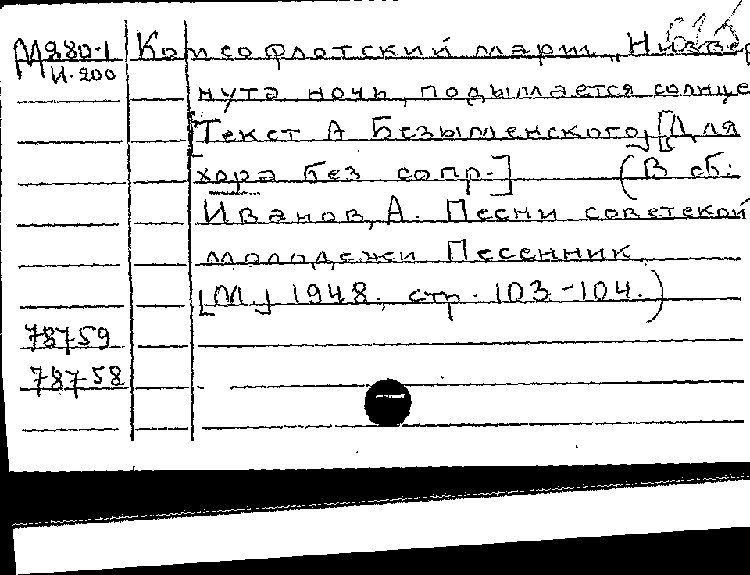 М280-1 Комсофлотский марш, Низвер
И-200 нута ночь, подымается солнце
[Текст А Безыменского] [Для
хора без сопр.] (В сб:
Иванов, А. Песни советской
молодежи Песенник
[М.] 1948, стр. 103-104.)
78759
78758